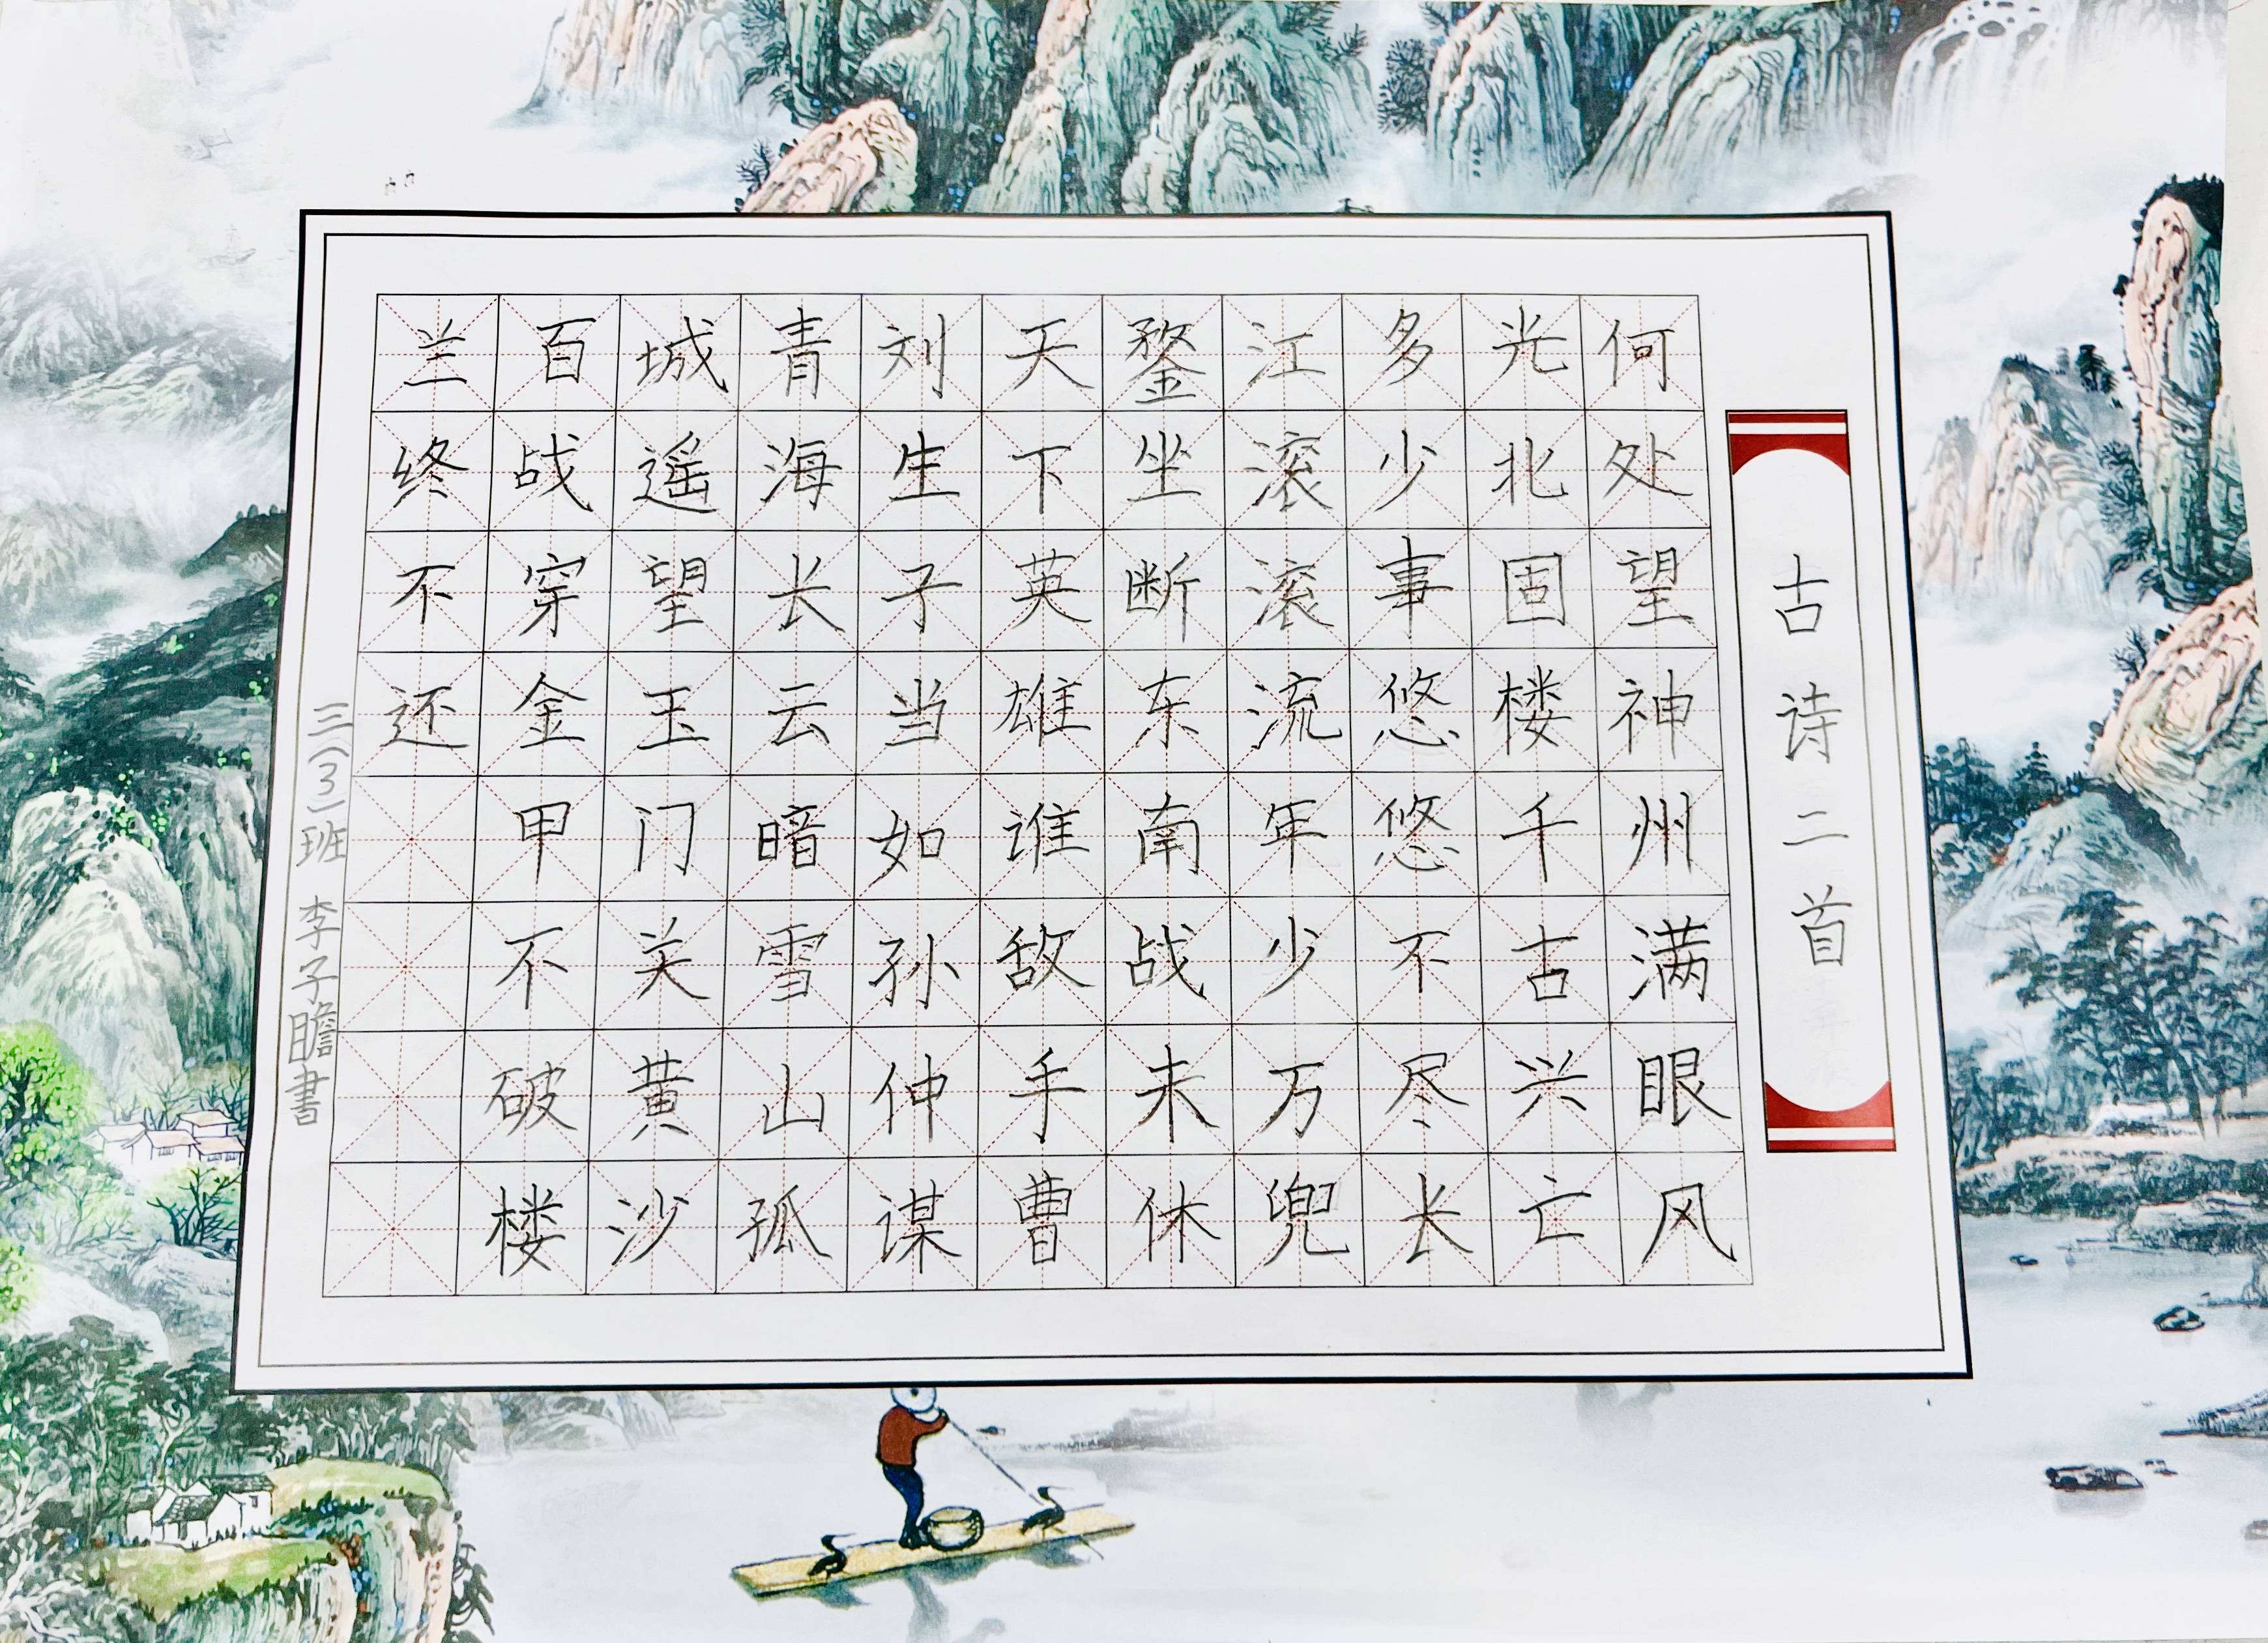 古诗二首
何处望神州满眼风
光北固楼千古兴亡
多少事悠悠不尽长
江滚滚流年少万兜
鍪坐断东南战未休
天下英雄谁敌手曹
刘生子当如孙仲谋
青海长云暗雪山孤
城遥望玉门关黄沙
百战穿金甲不破楼
兰终不还
三(3)班 李子瞻書